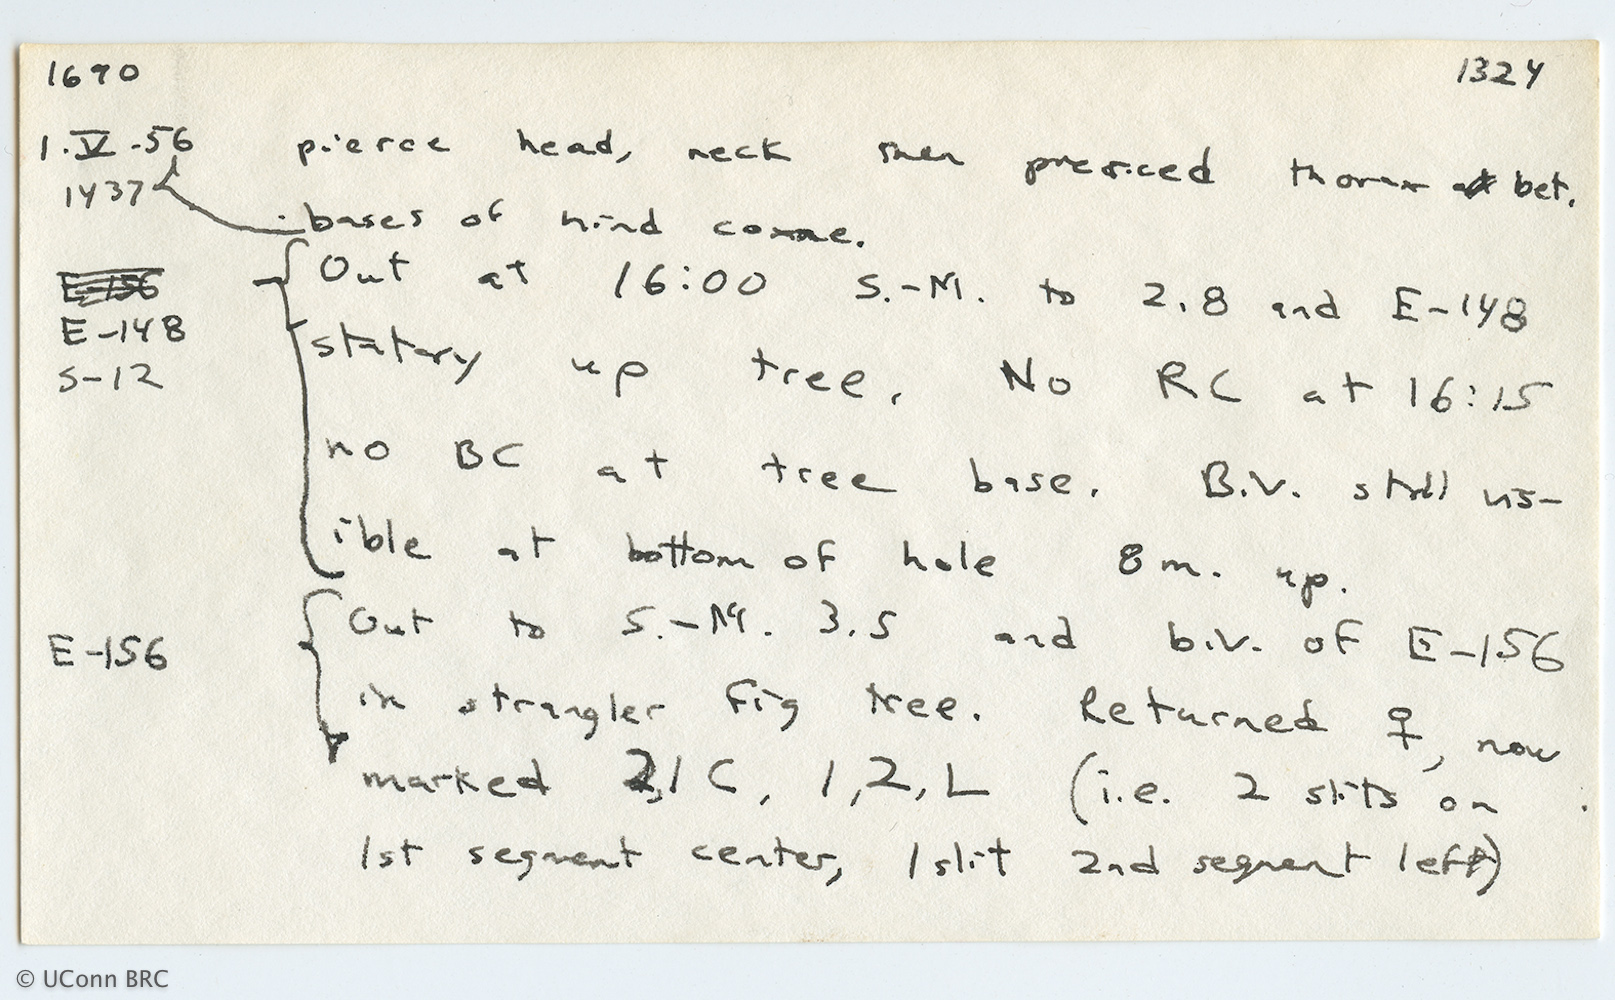 1690 1324
1.V.56 pierce head, neck then prericed thorax bet.
1437 bases of hind coxae.
E-156
Out at 16:00 S.-M. to 2.8 and E-148
E-148
S-12
statary up tree. No RC at 16:15
no BC at tree base. B.V. still vis-
ible at bottom of hole 8 m. up.
E-156 Out to S.-M. 3.5 and b.v. of E-156
in strangler fig tree. Returned ♀, now
marked 2,1 C, 1,2,L (i.e. 2 slits on
1st segment center, 1 slit 2nd segment left)
© UConn BRC